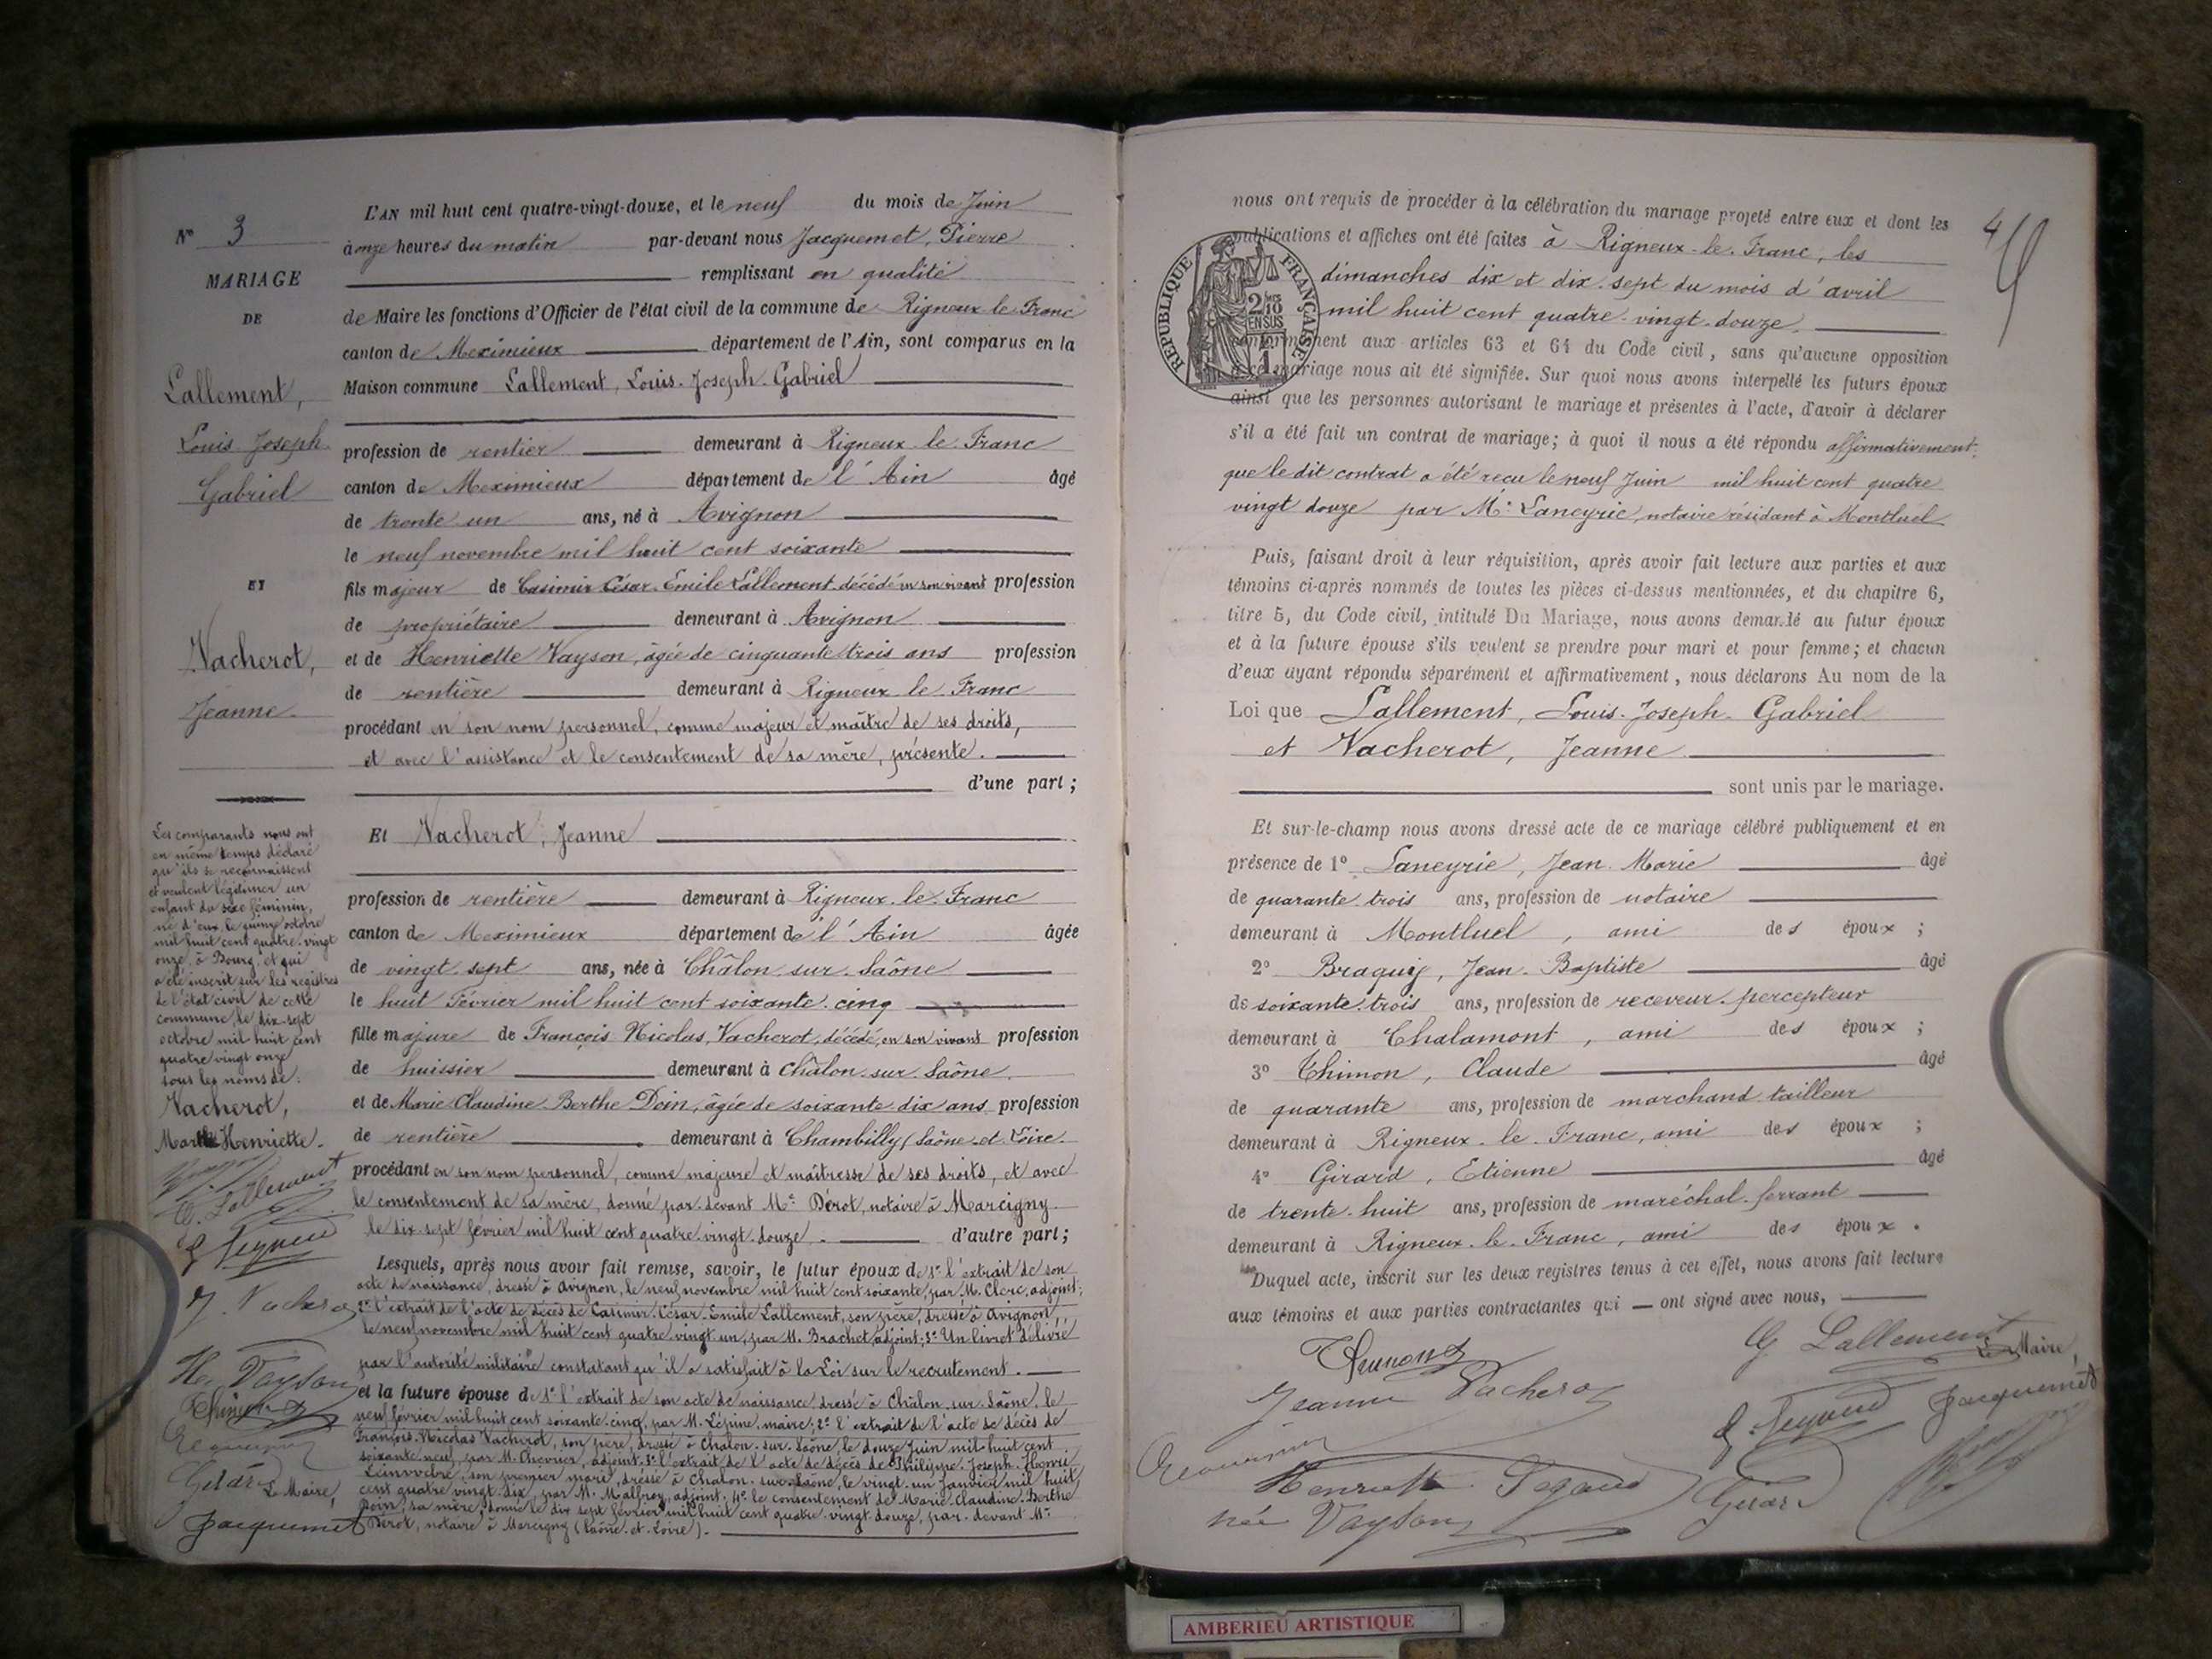 N° 3
MARIAGE
DE
Lallement,
Louis Joseph
Gabriel
ET
Vacherot,
Jeanne
Les comparants nous ont
en même temps déclaré
qu'ils se reconnaissent
et veulent légitimer un
enfant du sexe féminin,
né d'eux le quinze octobre
mil huit cent quatre-vingt
onze, à Bourg, et qui
a été inscrit sur les registres
de l'état civil de cette
commune, le dix-sept
octobre mil huit cent
quatre vingt onze
sous les noms de:
Vacherot,
Henriette.
G. Lallement
J. Vachero
H. Vayson
Girard
Le Maire,
Jacquemet
L'AN mil huit cent quatre-vingt-douze, et le neuf du mois de Juin
à onze heures du matin par-devant nous Jacquemet, Pierre
remplissant en qualité
de Maire les fonctions d'Officier de l'état civil de la commune de Rigneux-le-Franc
canton de Meximieux département de l'Ain, sont comparus en la
Maison commune Lallement, Louis-Joseph-Gabriel
profession de rentier demeurant à Rigneux-le-Franc
canton de Meximieux département de l'Ain âgé
de trente un ans, né à Avignon
le neuf novembre mil huit cent soixante
fils majeur de Casimir César-Emile Lallement décédé en son vivant profession
de propriétaire demeurant à Avignon
et de Henriette Vayson, âgée de cinquante trois ans profession
de rentière demeurant à Rigneux le Franc
procédant en son nom personnel, comme majeur et maître de ses droits,
et avec l'assistance et le consentement de sa mère, présente.
d'une part;
Et Vacherot, Jeanne
profession de rentière demeurant à Rigneux-le-Franc
canton de Meximieux département de l'Ain âgée
de vingt-sept ans, née à Châlon-sur-Saône
le huit Février mil huit cent soixante-cinq
fille majeure de François Nicolas, Vacherot, décédé, en son vivant profession
de huissier demeurant à Châlon-sur-Saône.
et de Marie Claudine Berthe Doin, âgée de soixante-dix ans profession
de rentière demeurant à Chambilly (Saône-et-Loire.
procédant en son nom personnel, comme majeure et maîtresse de ses droits, et avec
le consentement de sa mère, donné par-devant Me Dérot, notaire à Marcigny
le dix-sept février mil huit cent quatre-vingt-douze. d'autre part;
Lesquels, après nous avoir fait remise, savoir, le futur époux de 1° l'extrait de son
acte de naissance, dressé à Avignon, le neuf novembre mil huit cent soixante, par M. Clerc, adjoint;
2° l'extrait de l'acte de décès de Casimir-César-Emile Lallement, son père, dressé à Avignon,
le neuf novembre mil huit cent quatre vingt un, par M. Brachet, adjoint; 3° Un livret délivré
par l'autorité militaire constatant qu'il a satisfait à la Loi sur le recrutement.
et la future épouse de 1° l'extrait de son acte de naissance, dressé à Châlon-sur-Saône, le
neuf février mil huit cent soixante-cinq, par M. Lépine, maire; 2° l'extrait de l'acte de décès de
François-Nicolas Vacherot, son père, dressé à Chalon-sur-Saône, le douze Juin mil huit cent
soixante-neuf, par M. Chevrier, adjoint. 3° l'extrait de l'acte de décès de Philippe-Joseph-Henri
son premier mari, dressé à Chalon-sur-Saône, le vingt-un Janvier mil huit
cent quatre vingt-dix, par M. Malfroy, adjoint. 4° le consentement de Marie-Claudine-Berthe
Doin, sa mère, donné le dix-sept février mil huit cent quatre-vingt-douze, par-devant Me
Dérot, notaire à Marcigny (Saône-et-Loire).
4
nous ont requis de procéder à la célébration du mariage projeté entre eux et dont les
publications et affiches ont été faites à Rigneux-le-Franc, les
dimanches dix et dix-sept du mois d'avril
mil huit cent quatre-vingt-douze.
RÉPUBLIQUE FRANÇAISE
2/10
EN SUS
conformément aux articles 63 et 64 du Code civil, sans qu'aucune opposition
à ce mariage nous ait été signifiée. Sur quoi nous avons interpellé les futurs époux
ainsi que les personnes autorisant le mariage et présentes à l'acte, d'avoir à déclarer
s'il a été fait un contrat de mariage; à quoi il nous a été répondu affirmativement,
que le dit contrat a été reçu le neuf Juin mil huit cent quatre
vingt douze par Me Laneyrie, notaire résidant à Montluel.
Puis, faisant droit à leur réquisition, après avoir fait lecture aux parties et aux
témoins ci-après nommés de toutes les pièces ci-dessus mentionnées, et du chapitre 6,
titre 5, du Code civil, intitulé Du Mariage, nous avons demandé au futur époux
et à la future épouse s'ils veulent se prendre pour mari et pour femme; et chacun
d'eux ayant répondu séparément et affirmativement, nous déclarons Au nom de la
Loi que Lallement, Louis-Joseph-Gabriel
et Vacherot, Jeanne
sont unis par le mariage.
Et sur-le-champ nous avons dressé acte de ce mariage célébré publiquement et en
présence de 1° Laneyrie, Jean-Marie âgé
de quarante-trois ans, profession de notaire
demeurant à Montluel, ami des époux;
2° Jean-Baptiste âgé
de soixante-trois ans, profession de receveur-percepteur
demeurant à Chalamont, ami des époux;
3° Thimon, Claude âgé
de quarante ans, profession de marchand tailleur
demeurant à Rigneux-le-Franc, ami des époux;
4° Girard, Etienne âgé
de trente-huit ans, profession de maréchal-ferrant
demeurant à Rigneux-le-Franc, ami des époux.
Duquel acte, inscrit sur les deux registres tenus à cet effet, nous avons fait lecture
aux témoins et aux parties contractantes qui — ont signé avec nous,
G Lallement
Le Maire,
Jeanne Vachero
Jacquemet
Henriette
née Vayson
Girard
AMBERIEU ARTISTIQUE